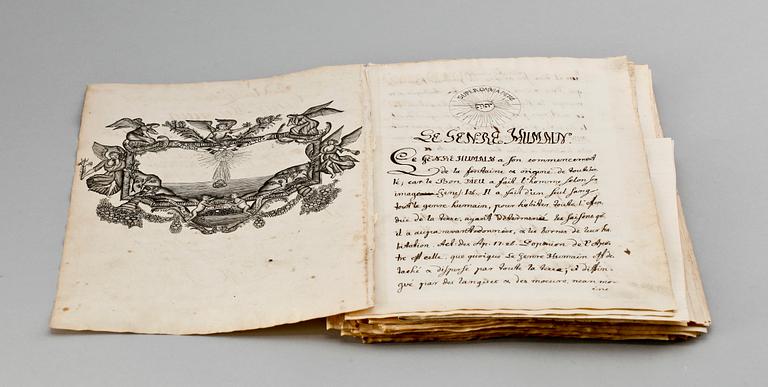 LE GENRE HUMAIN.
Le GENRE HUMAIN a son commencement
de la fontaine & origine de toute bon
té, car le Bon DIEU a fait l'homme selon son
image Genes. 1.26. Il a fait d'un seul sang
tout le genre humain, pour habiter toute l'éten
due de la terre, ayant determiné les saisons qu'
il a auparavant ordonnées, & les bornes de leur ha
bitation. Act. des Ap. 17.26. L'opinion de
tre est celle, que quoique le Genre Humain est de
taché & dispersé par toute la terre, et distin
gué par des langues & des mœurs, nean moi